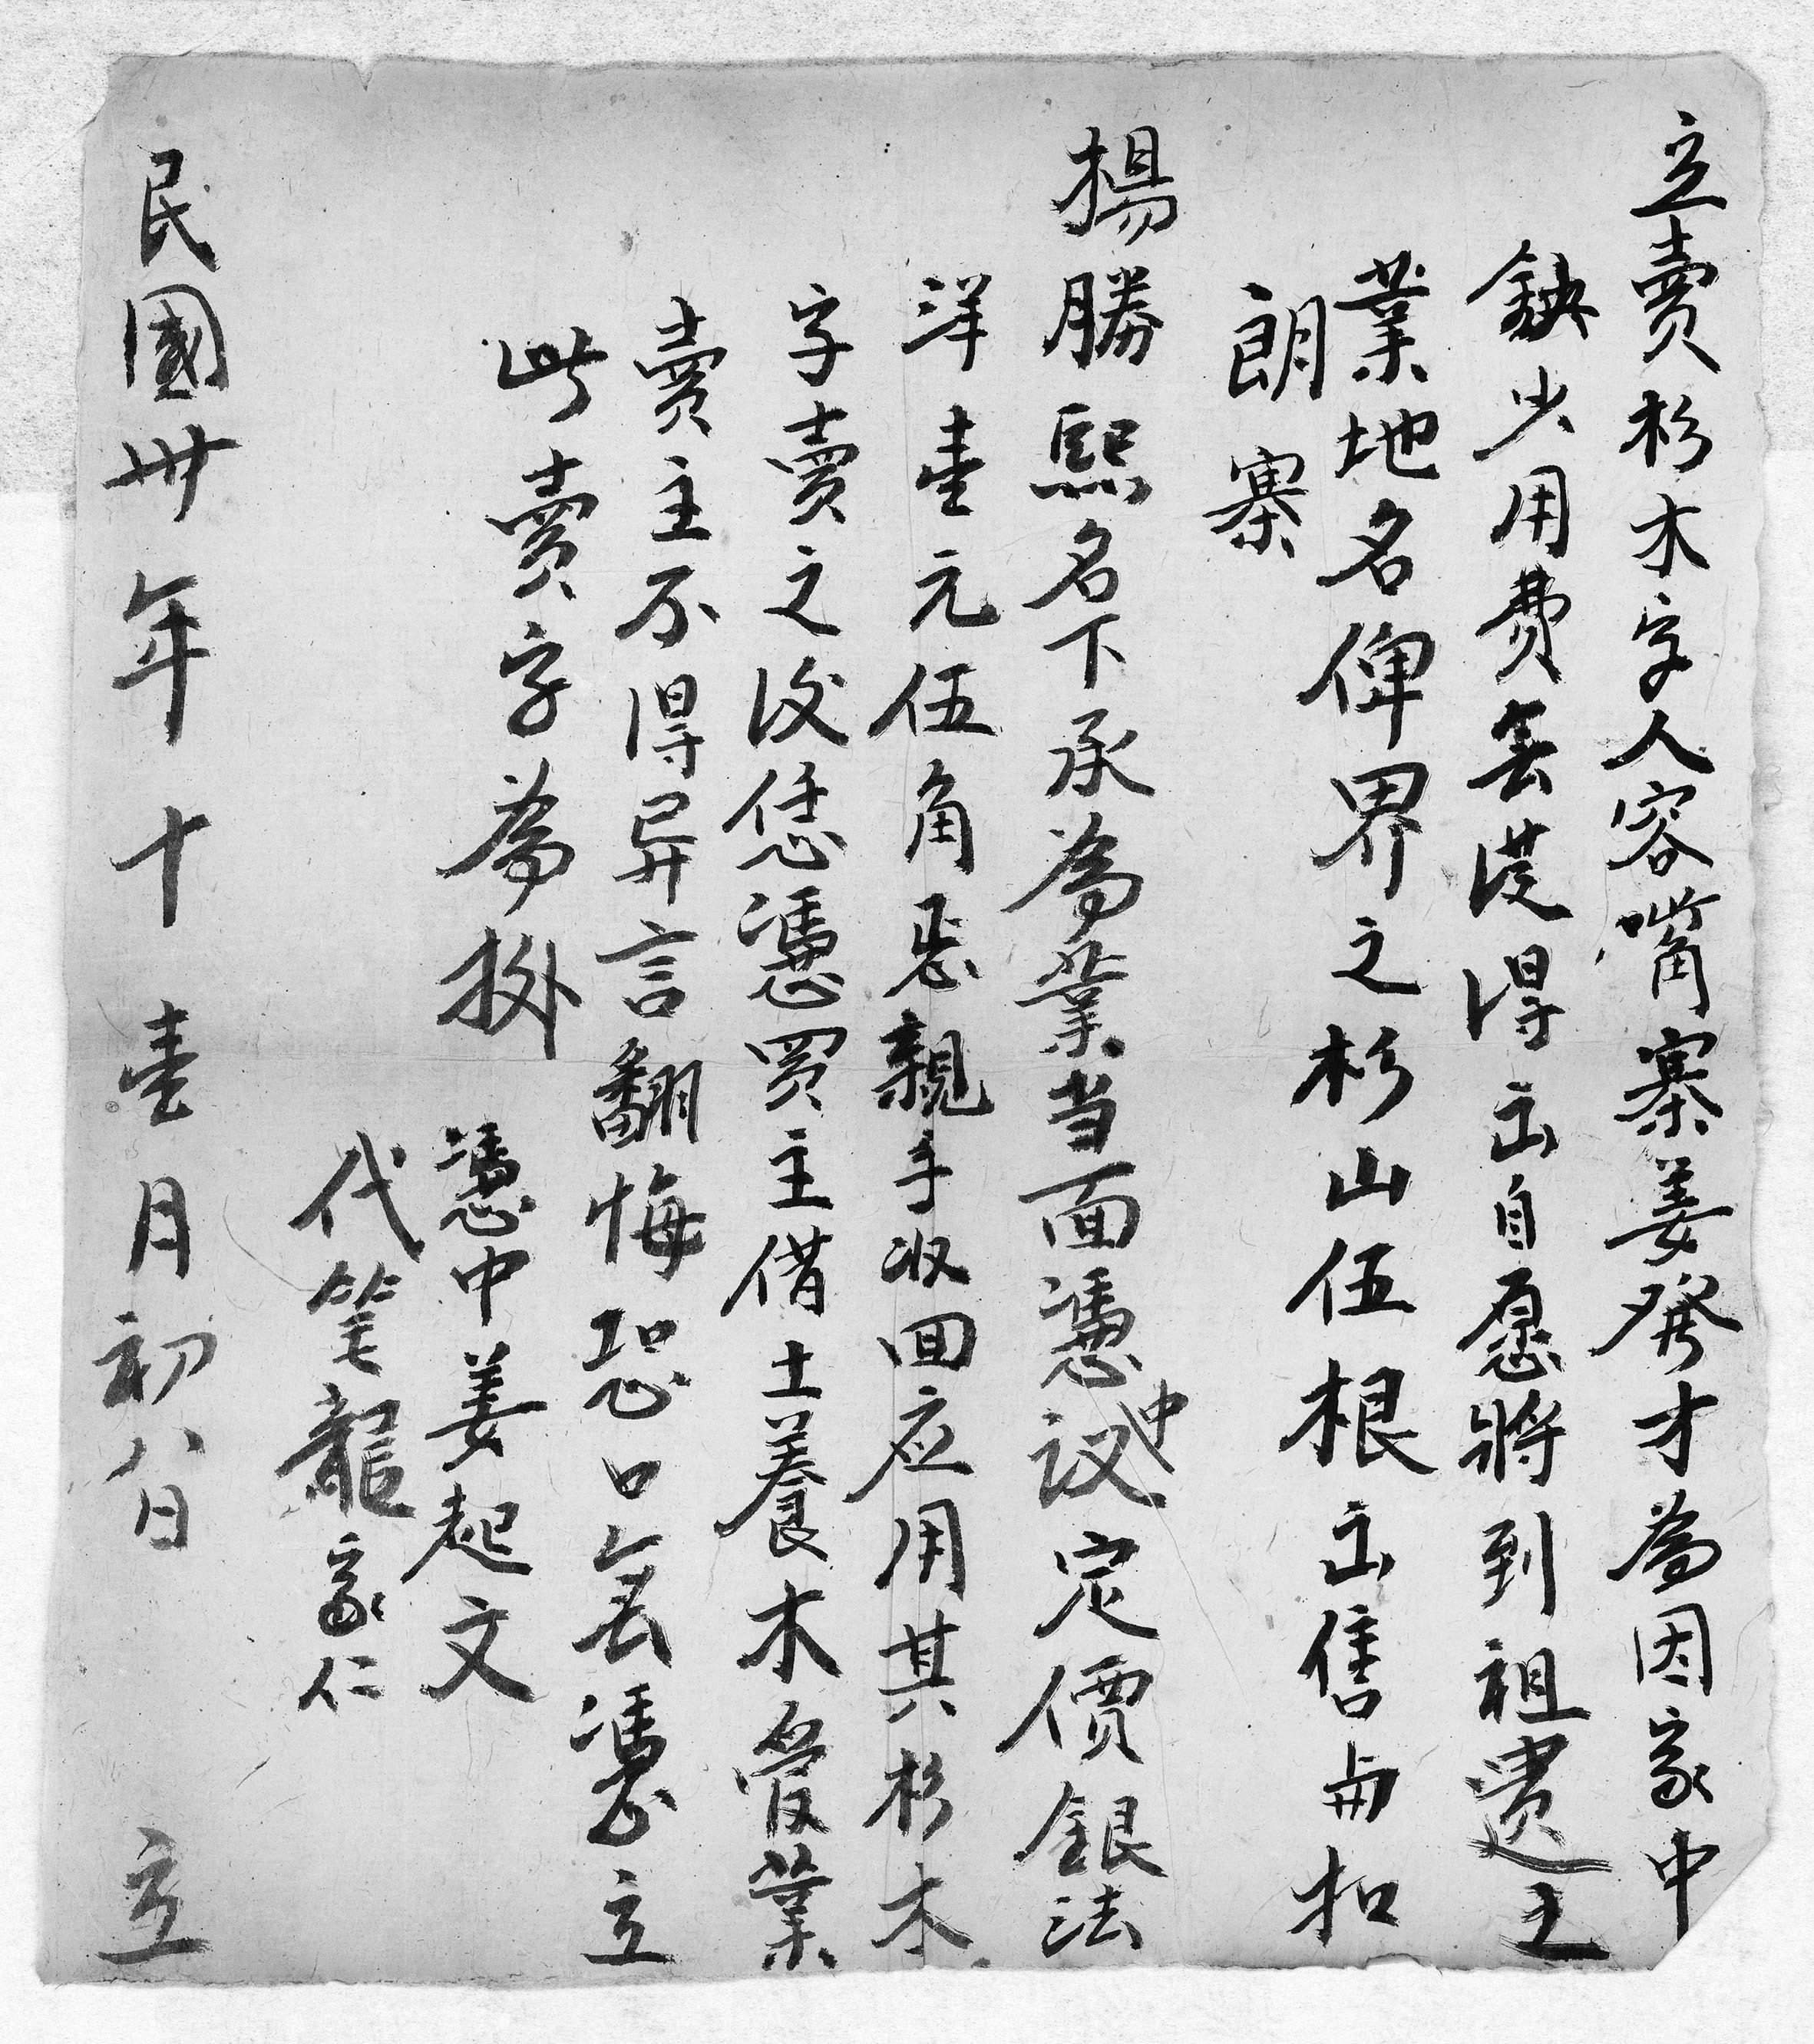 立賣杉木字人容嘴寨姜發才為因家中
缺少用費無從得出自愿將到祖遺之
業地名俾界之杉山伍根出售与扣
朗寨
楊勝熙名下承為業当面憑中议定價銀法
洋壹元伍角恁親手收回应用其杉木
字賣之後恁憑買主借土養木管業
賣主不得异言翻悔恐口無憑立
此賣字為挶
憑中姜起文
代笔龍家仁
民國卅年十壹月初八日 立